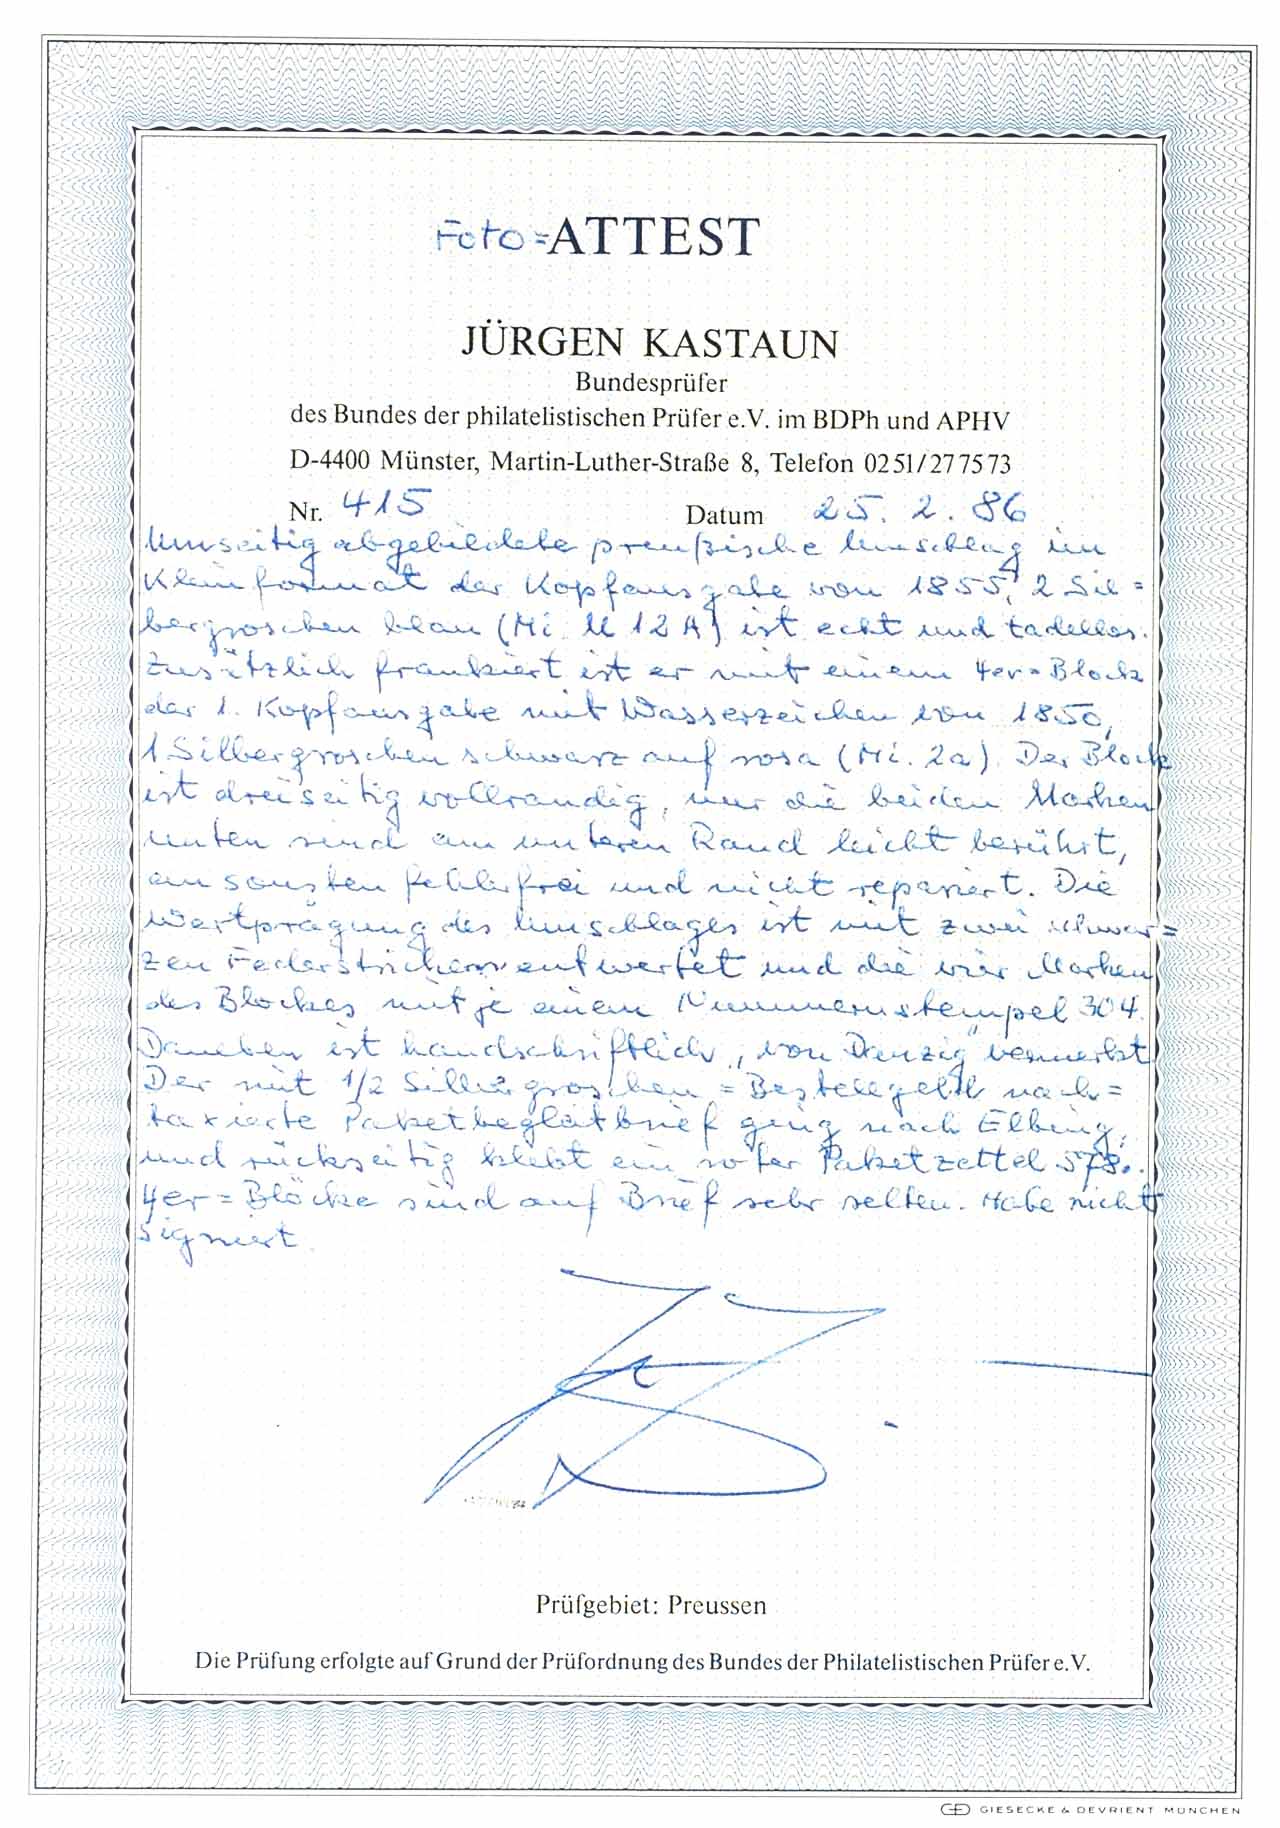 Foto=ATTEST
JÜRGEN KASTAUN
Bundesprüfer
des Bundes der philatelistischen Prüfer e.V. im BDPh und APHV
D-4400 Münster, Martin-Luther-Straße 8, Telefon 0251/277573
Nr. 415 Datum 25. 2. 86
Umseitig abgebildete preußische Umschlag im
Kleinformat der Kopfausgabe von 1855, 2 Sil=
bergroschen blau (Mi. U 12 A) ist echt und tadellos.
Zusätzlich frankiert ist er mit einem 4er=Block
der 1. Kopfausgabe mit Wasserzeichen von 1850,
1 Silbergroschen schwarz auf rosa (Mi. 2a). Der Block
ist dreiseitig vollrandig, nur die beiden Marken
unten sind am unteren Rand leicht berührt,
ansonsten fehlerfrei und nicht repariert. Die
Wertprägung des Umschlages ist mit zwei schwar=
zen Federstrichen entwertet und die vier Marken
des Blockes mit je einem Nummernstempel 304.
Daneben ist handschriftlich „von Danzig" vermerkt.
Der mit 1/2 Silbergroschen=Bestellgeld nach=
taxierte Paketbegleitbrief ging nach Elbing,
und rückseitig klebt ein roter Paketzettel 578.
4er=Blöcke sind auf Brief sehr selten. Habe nicht
signiert.
Prüfgebiet: Preussen
Die Prüfung erfolgte auf Grund der Prüfordnung des Bundes der Philatelistischen Prüfer e.V.
GIESECKE & DEVRIENT MÜNCHEN